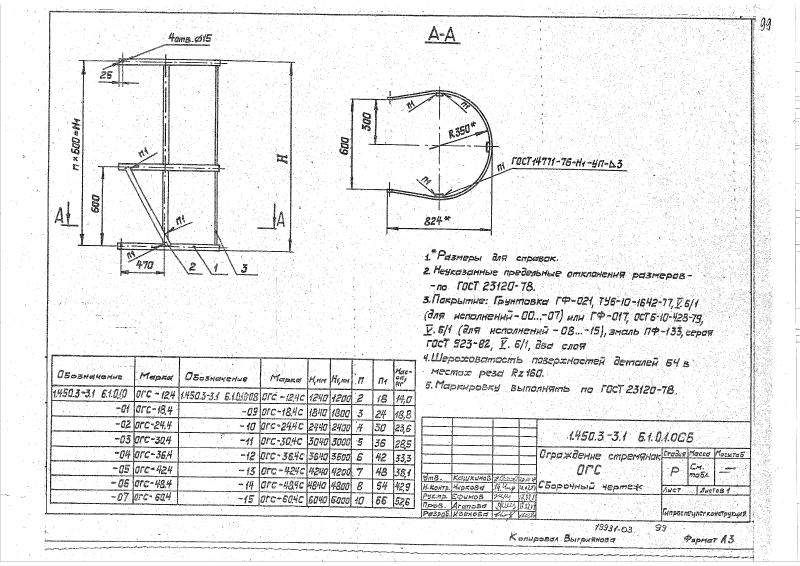 99
4отв. ⌀15
26
n × 600 = H1
H
600
470
A
A
п1
п1
п1
2
1
3
А-А
600
300
R.350*
п1
п1
п1
п1
ГОСТ 14771-76-Н1-УП-Δ3
824*
1.*Размеры для справок.
2. Неуказанные предельные отклонения размеров -
- по ГОСТ 23120-78.
3. Покрытие: Грунтовка ГФ-021, ТУ6-10-1642-77, V. 6/1
(для исполнений -00...-07) или ГФ-017, ОСТ6-10-428-79,
V. 6/1 (для исполнений -08...-15), эмаль ПФ-133, серая
ГОСТ 923-82, V. 6/1, два слоя
4. Шероховатость поверхностей деталей БЧ в
местах реза Rz160.
5. Маркировку выполнять по ГОСТ 23120-78.
Обозначение Марка Обозначение Марка H,мм H1,мм n п1 Масса, кг
1.450.3-3.1 6.1.0.10 ОГС-12.4 1.450.3-3.1 6.1.0.10-08 ОГС-12.4С 1240 1200 2 18 14,0
-01 ОГС-18.4 -09 ОГС-18.4С 1840 1800 3 24 18,8
-02 ОГС-24.4 -10 ОГС-24.4С 2440 2400 4 30 23,6
-03 ОГС-30.4 -11 ОГС-30.4С 3040 3000 5 36 28,5
-04 ОГС-36.4 -12 ОГС-36.4С 3640 3600 6 42 33,3
-05 ОГС-42.4 -13 ОГС-42.4С 4240 4200 7 48 38,1
-06 ОГС-48.4 -14 ОГС-48.4С 4840 4800 8 54 42,9
-07 ОГС-60.4 -15 ОГС-60.4С 6040 6000 10 66 52,6
1.450.3-3.1 6.1.0.1.0СБ
Ограждение стремянок
ОГС
Сборочный чертеж
Стадия Масса Масштаб
Р См. табл. —
Лист Листов 1
Гипроспецлегконструкция
Утв. Кашкинов
Н.контр. Чиркова
Рук.пр. Ефимов
Пров. Агапова
Разраб. Иванова
19931-03 99
Копировал Выгриянова Формат А3